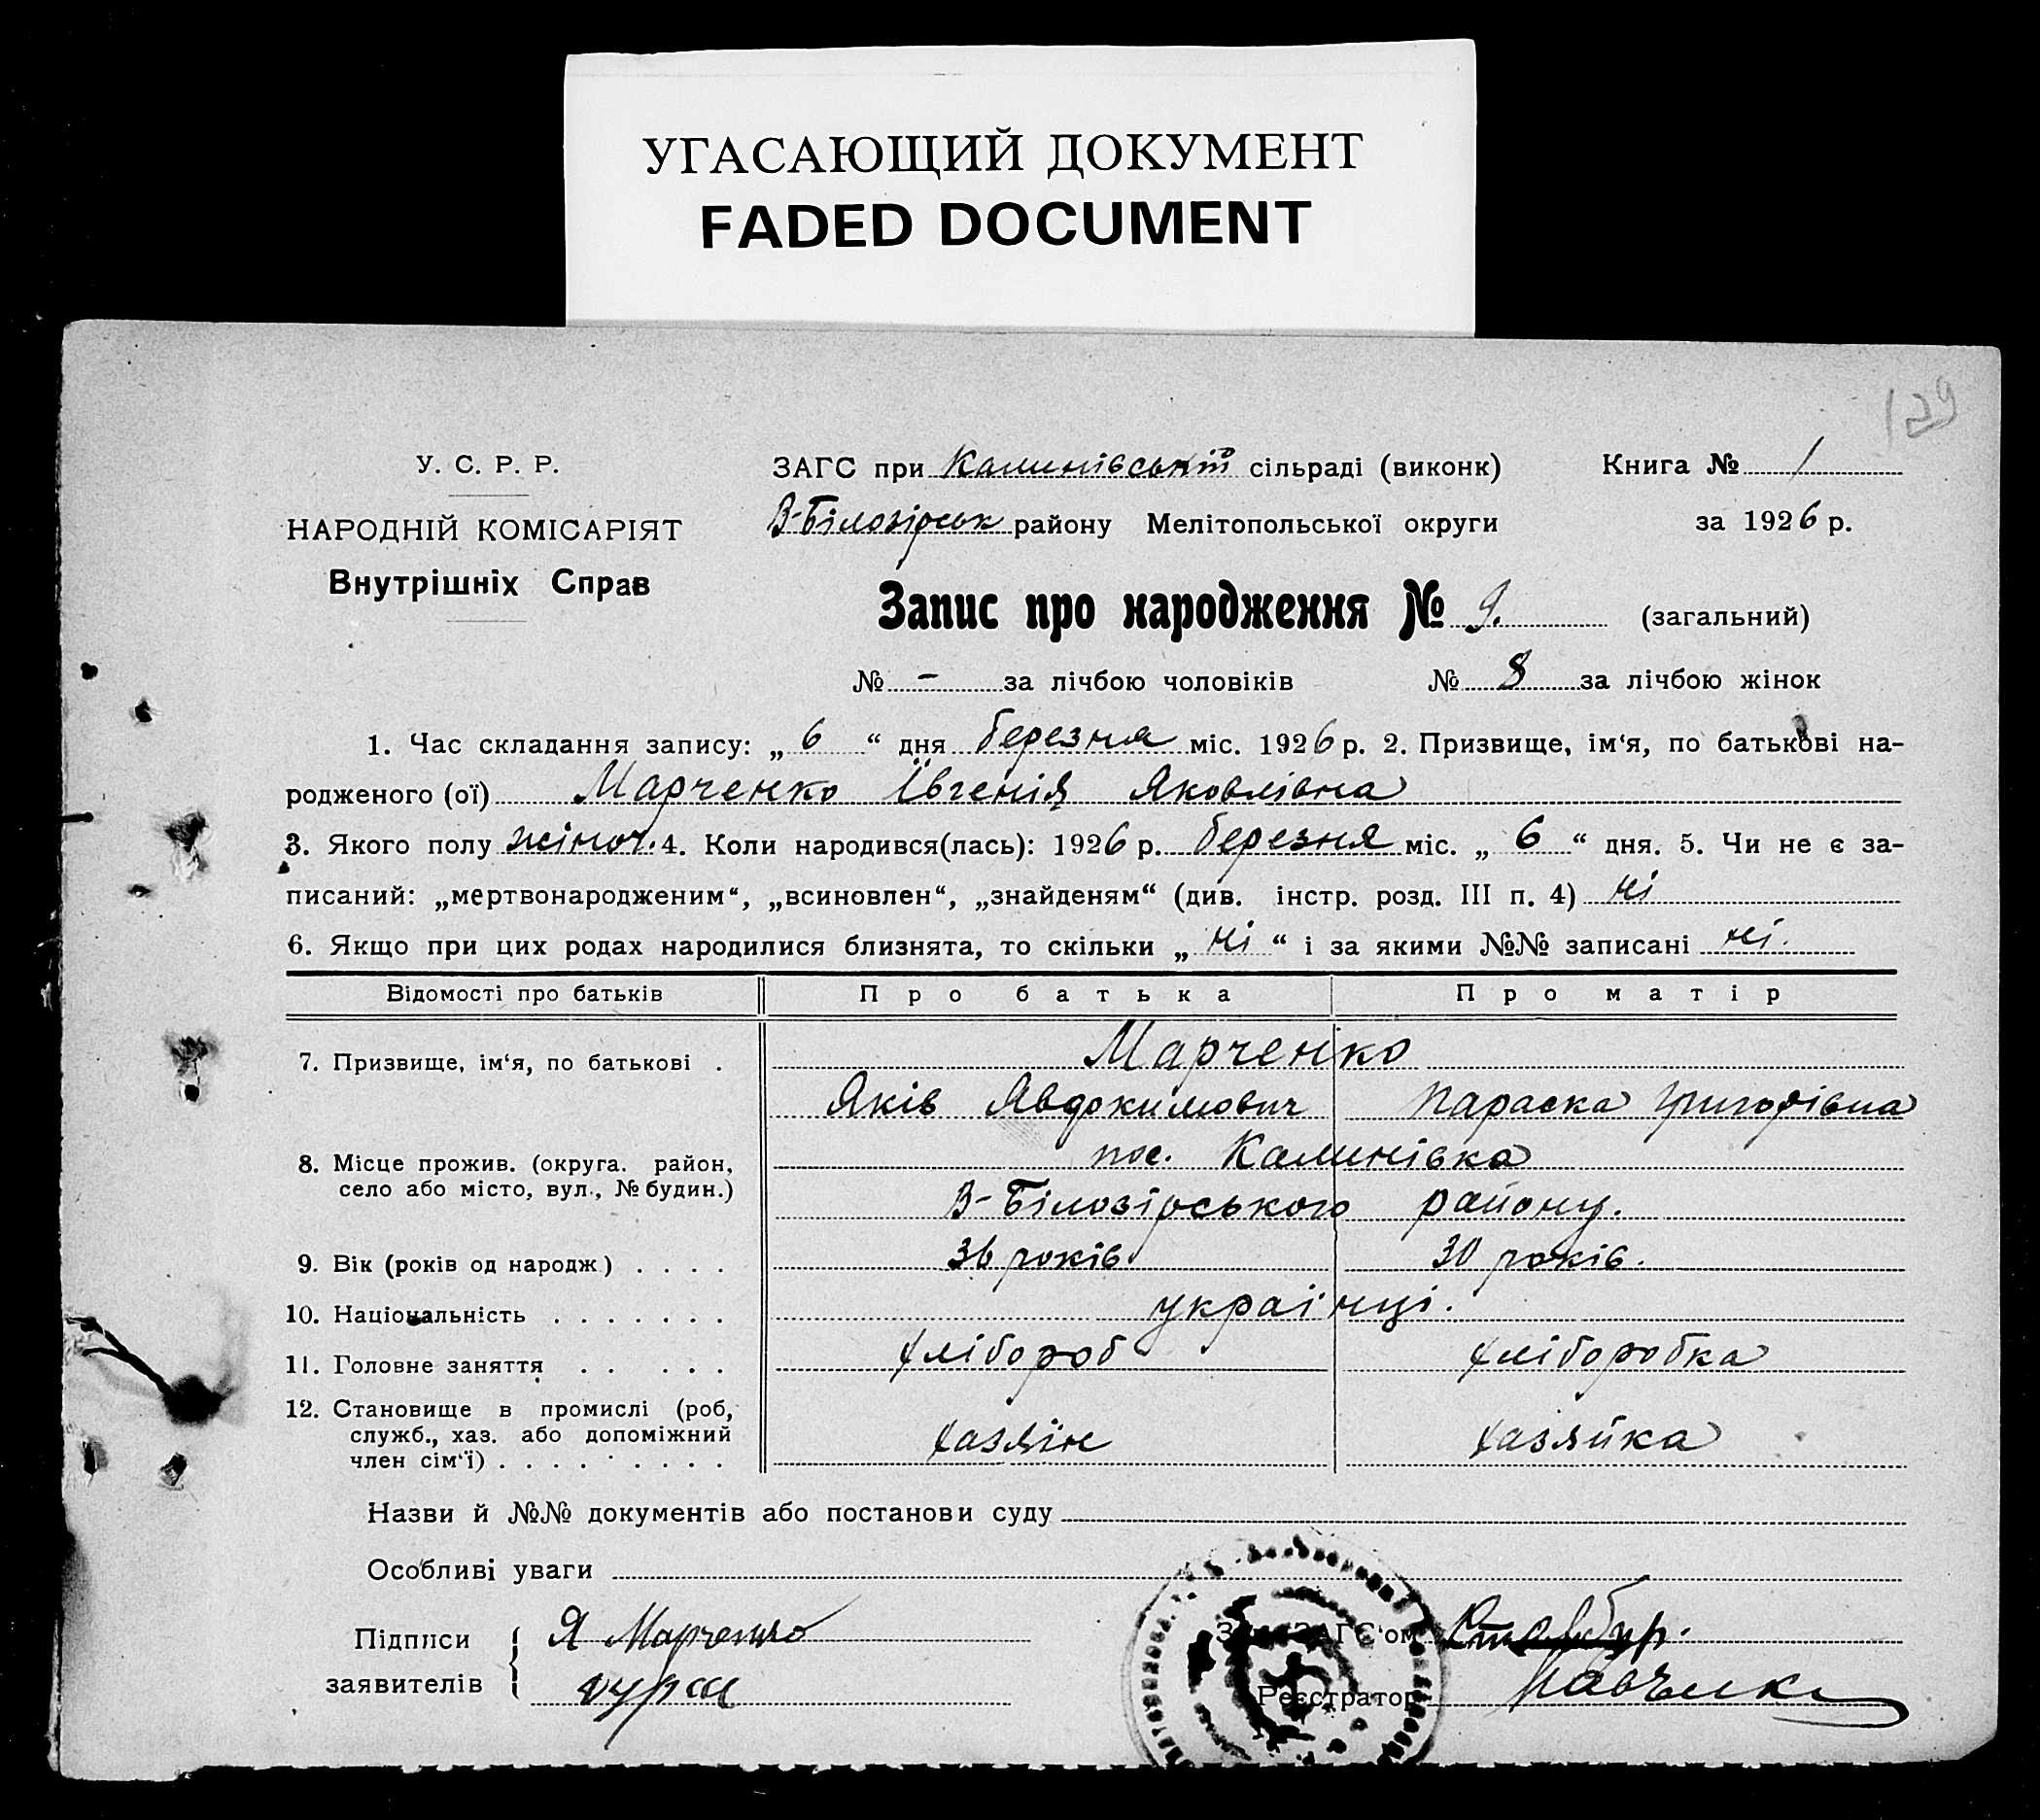 УГАСАЮЩИЙ ДОКУМЕНТ
FADED DOCUMENT
129
У. С. Р. Р.
НАРОДНІЙ КОМІСАРІЯТ
Внутрішніх Справ
ЗАГС при Калинівській сільраді (виконк) Книга № 1
В-Білозірськ району Мелітопольської округи за 1926 р.
Запис про народження № 9. (загальний)
№ - за лічбою чоловіків № 8 за лічбою жінок
1. Час складання запису: „ 6 “ дня березня міс. 1926 р. 2. Призвище, ім‘я, по батькові на-
родженого (ої) Марченко Євгенія Яковлівна
3. Якого полу жіноч. 4. Коли народився(лась): 1926 р. березня міс. „ 6 “ дня. 5. Чи не є за-
писаний: „мертвонародженим“, „всиновлен“, „знайденям“ (див. інстр. розд. III п. 4) ні
6. Якщо при цих родах народилися близнята, то скільки „ ні “ і за якими №№ записані ні.
Відомості про батьків Про батька Про матір
7. Призвище, ім‘я, по батькові . Марченко
Яків Явдокимович Параска Григорівна
8. Місце прожив. (округа. район, пос. Калинівка
село або місто, вул., № будин.) В-Білозірського району.
9. Вік (років од народж.) . . . . 36 років 30 років.
10. Національність . . . . . . . українці.
11. Головне заняття . . . . . хлібороб хліборобка
12. Становище в промислі (роб,
служб., хаз. або допоміжний хазяін хазяйка
член сім‘ї) . . . . . . . . .
Назви й №№ документів або постанови суду
Особливі уваги
Підписи Я Марченко
заявителів
Зав. ЗАГС‘ом
Реєстратор